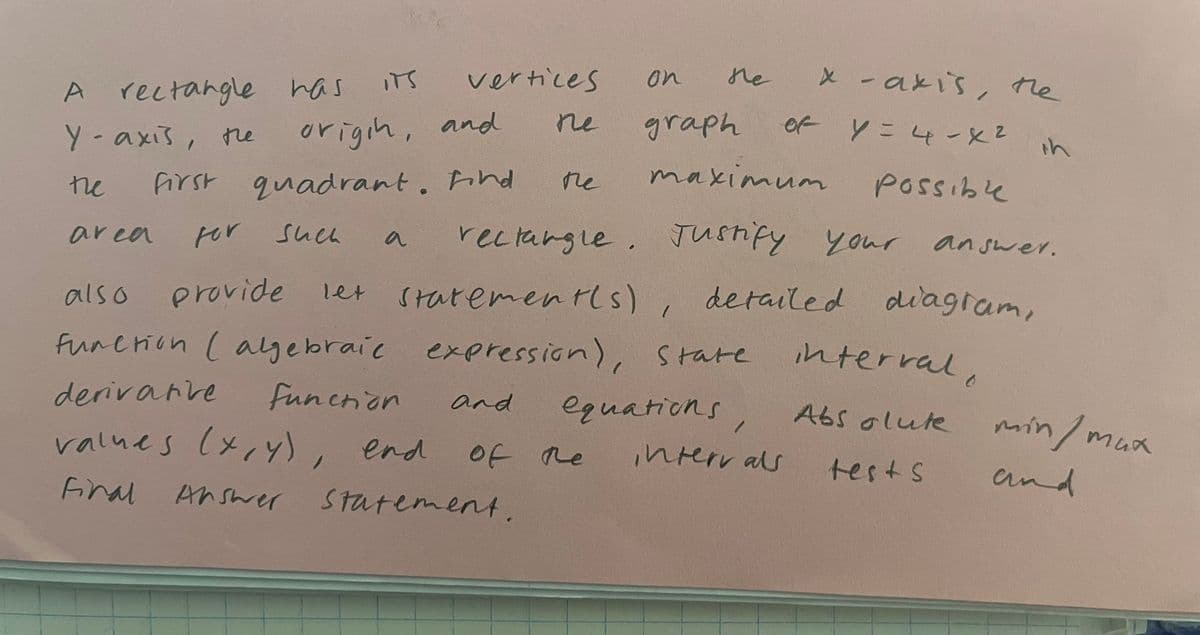 A rectangle has its vertices on the x-axis, the
y-axis, the origin, and the graph of y = 4 - x² in
the first quadrant. Find the maximum possible
area for such a rectangle. Justify your answer.
also provide let statement(s), detailed diagram,
function (algebraic expression), state interval,
derivative function and equations, Absolute min/max
values (x,y), end of the intervals tests and
Final Answer statement.